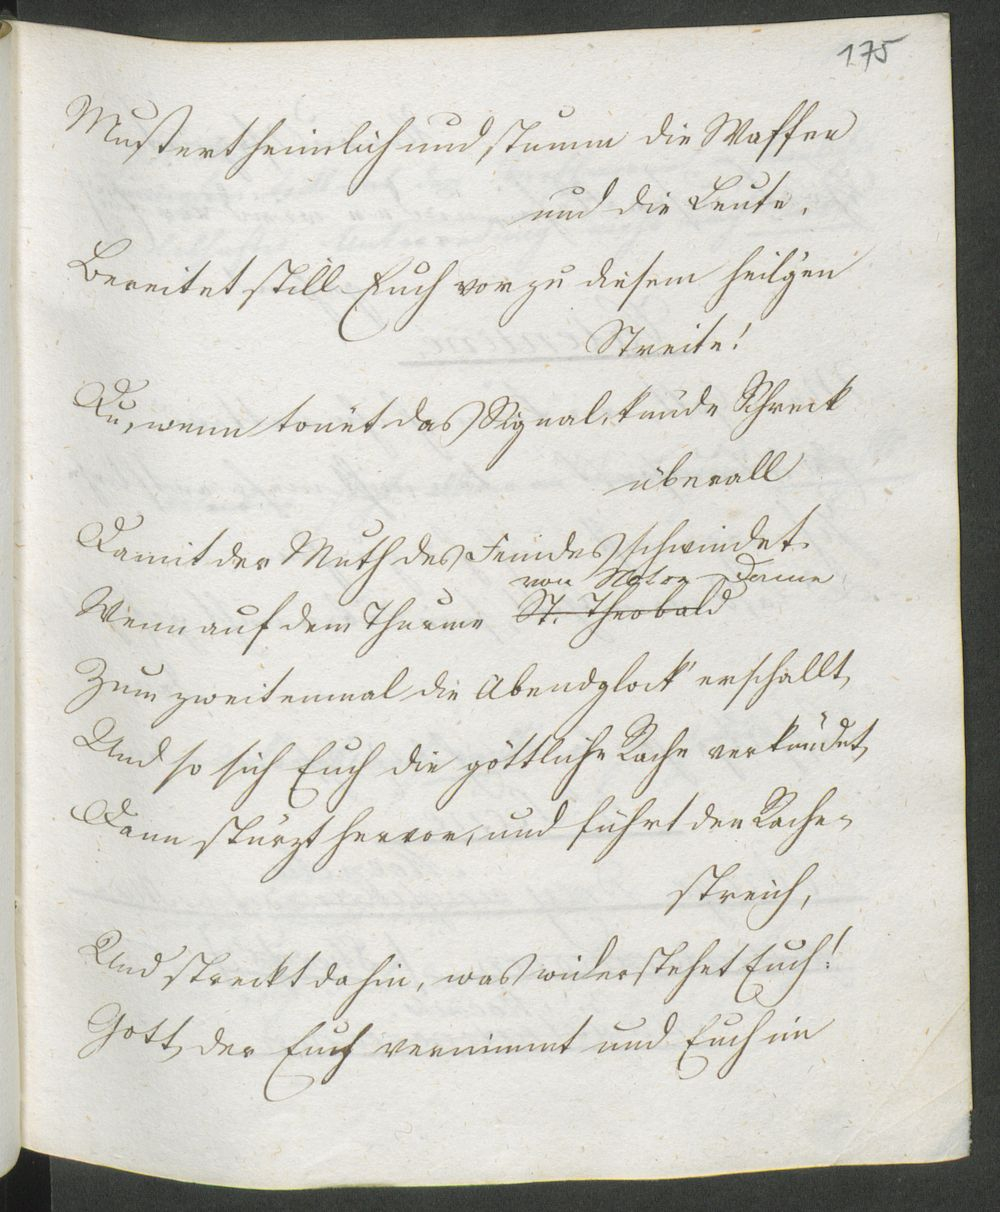 175
Mustert heimlich und stumm die Waffen
und die Leute,
Bereitet still Euch vor zu diesem heil'gen
Streite!
Du, wenn tönet das Signal, künde Schreck
überall
Damit der Muth des Feindes schwindet.
von Notre-Dame
Wenn auf dem Thurme St. Theobald
Zum zweitenmal die Abendglock' erschallt,
Und so sich Euch die göttliche Rache verkündet,
Dann stürzt hervor, und führt den Rache-
streich,
Und streckt dahin, was widerstehet Euch!
Gott, der Euch vernimmt und Euch im